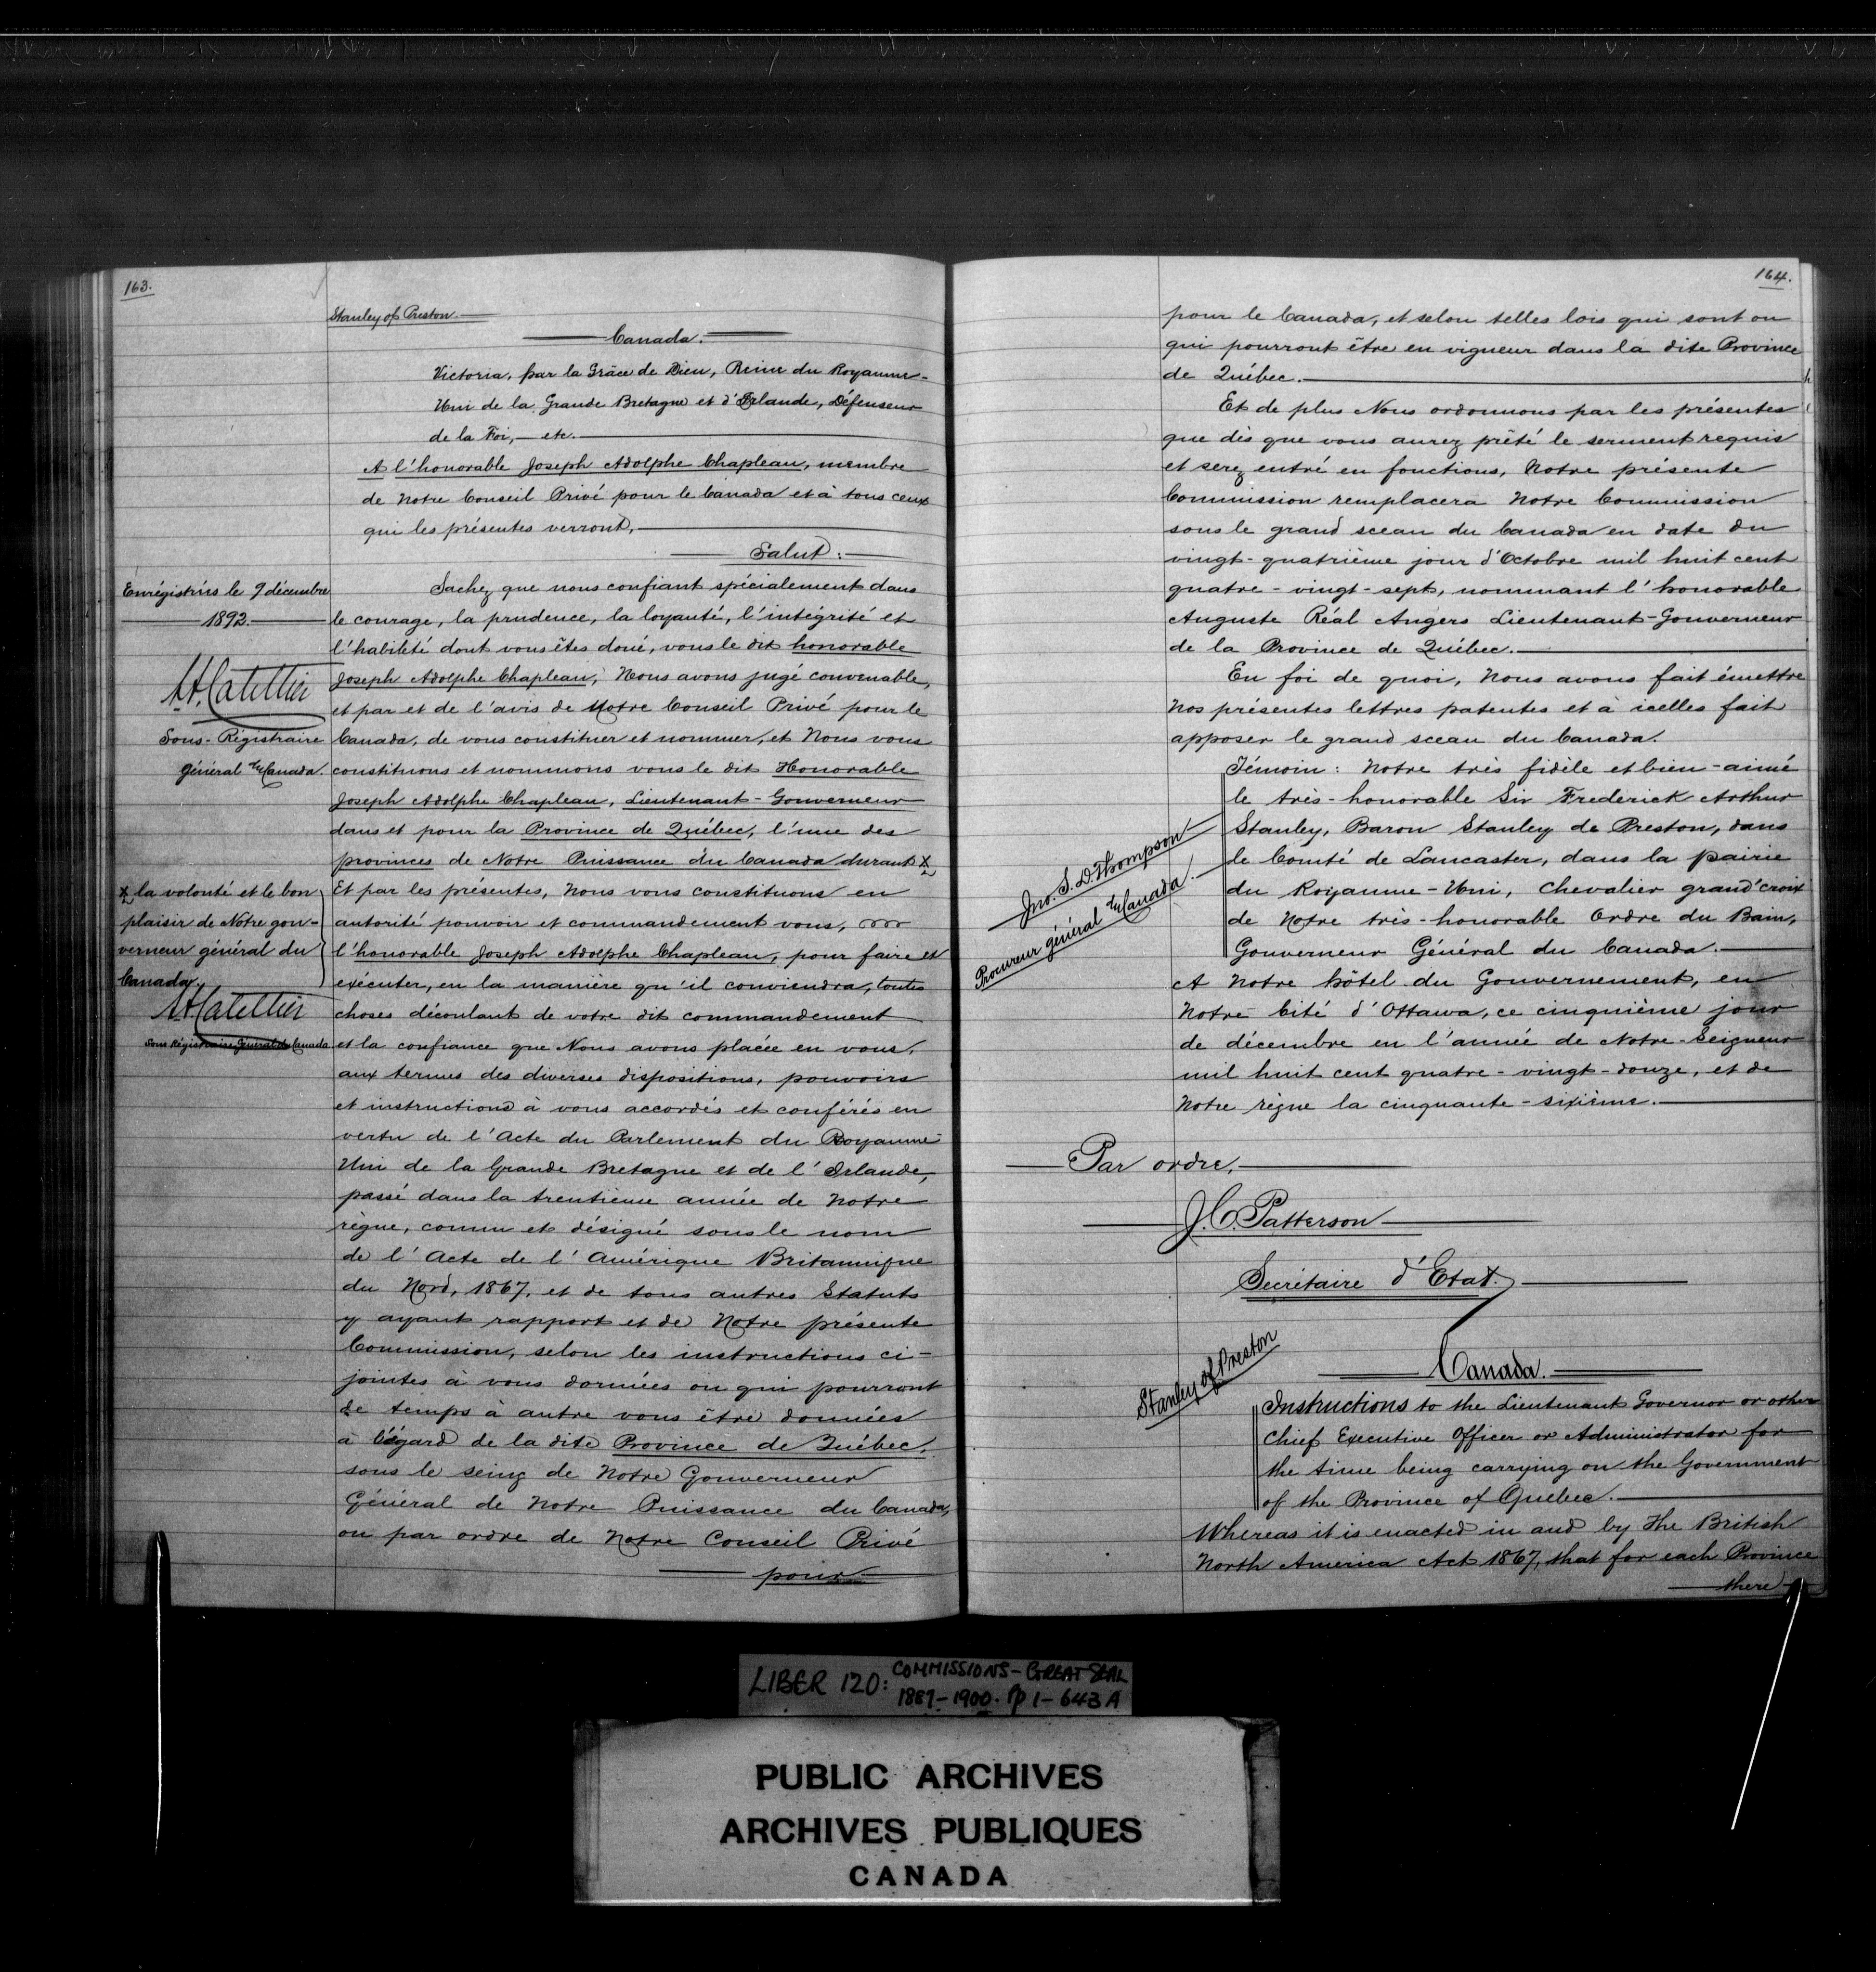 163.
Stanley of Preston.
Canada.
Victoria, par la Grâce de Dieu, Reine du Royaume-
Uni de la Grande Bretagne et d'Irlande, Défenseur
de la Foi, — etc.
A l'honorable Joseph Adolphe Chapleau, membre
de Notre Conseil Privé pour le Canada et à tous ceux
qui les présentes verront,
Salut:
Sachez que nous confiant spécialement dans
le courage, la prudence, la loyauté, l'intégrité et
l'habileté dont vous êtes doué, vous le dit honorable
Joseph Adolphe Chapleau, Nous avons jugé convenable,
et par et de l'avis de Notre Conseil Privé pour le
Canada, de vous constituer et nommer, et Nous vous
constituons et nommons vous le dit Honorable
Joseph Adolphe Chapleau, Lieutenant-Gouverneur
dans et pour la Province de Québec, l'une des
provinces de Notre Puissance du Canada durant X
Et par les présentes, Nous vous constituons en
autorité pouvoir et commandement vous,
l'honorable Joseph Adolphe Chapleau, pour faire et
exécuter, en la manière qu'il conviendra, toutes
choses découlant de votre dit commandement
et la confiance que Nous avons placée en vous,
aux termes des diverses dispositions, pouvoirs
et instructions à vous accordés et conférés en
vertu de l'Acte du Parlement du Royaume-
Uni de la Grande Bretagne et de l'Irlande,
passé dans la trentième année de Notre
règne, connu et désigné sous le nom
de l'Acte de l'Amérique Britannique
du Nord, 1867, et de tous autres Statuts
y ayant rapport et de Notre présente
Commission, selon les instructions ci-
jointes à vous données ou qui pourront
de temps à autre vous être données
à l'égard de la dite Province de Québec,
sous le seing de Notre Gouverneur
Général de Notre Puissance du Canada,
ou par ordre de Notre Conseil Privé
pour
Enrégistrés le 9 décembre
1892.
L.A. Catellier
Sous-Régistraire
général du Canada.
X la volonté et le bon
plaisir de Notre gou-
verneur général du
Canada.
L.A. Catellier
Sous Régistraire Général du Canada
164.
pour le Canada, et selon telles lois qui sont ou
qui pourront être en vigueur dans la dite Province
de Québec.
Et de plus Nous ordonnons par les présentes
que dès que vous aurez prêté le serment requis
et serez entré en fonctions, Notre présente
Commission remplacera Notre Commission
sous le grand sceau du Canada en date du
vingt-quatrième jour d'Octobre mil huit cent
quatre-vingt-sept, nommant l'honorable
Auguste Réal Angers Lieutenant-Gouverneur
de la Province de Québec.
En foi de quoi, Nous avons fait émettre
Nos présentes lettres patentes et à icelles fait
apposer le grand sceau du Canada.
Témoin: Notre très fidèle et bien-aimé
le très-honorable Sir Frederick Arthur
Stanley, Baron Stanley de Preston, dans
le Comté de Lancaster, dans la pairie
du Royaume-Uni, Chevalier grand'croix
de Notre très-honorable Ordre du Bain,
Gouverneur Général du Canada.
A Notre hôtel du Gouvernement, en
Notre Cité d'Ottawa, ce cinquième jour
de décembre en l'année de Notre-Seigneur
mil huit cent quatre-vingt-douze, et de
Notre règne la cinquante-sixième.
Jno. S. D. Thompson
Procureur général du Canada.
Par ordre,
J.C. Patterson
Secrétaire d'Etat.
Stanley of Preston
Canada.
Instructions to the Lieutenant Governor or other
Chief Executive Officer or Administrator for
the time being carrying on the Government
of the Province of Quebec.
Whereas it is enacted in and by The British
North America Act 1867, that for each Province
there
LIBER 120:
COMMISSIONS-GREAT SEAL
1889-1900. pp 1-643A
PUBLIC ARCHIVES
ARCHIVES PUBLIQUES
CANADA